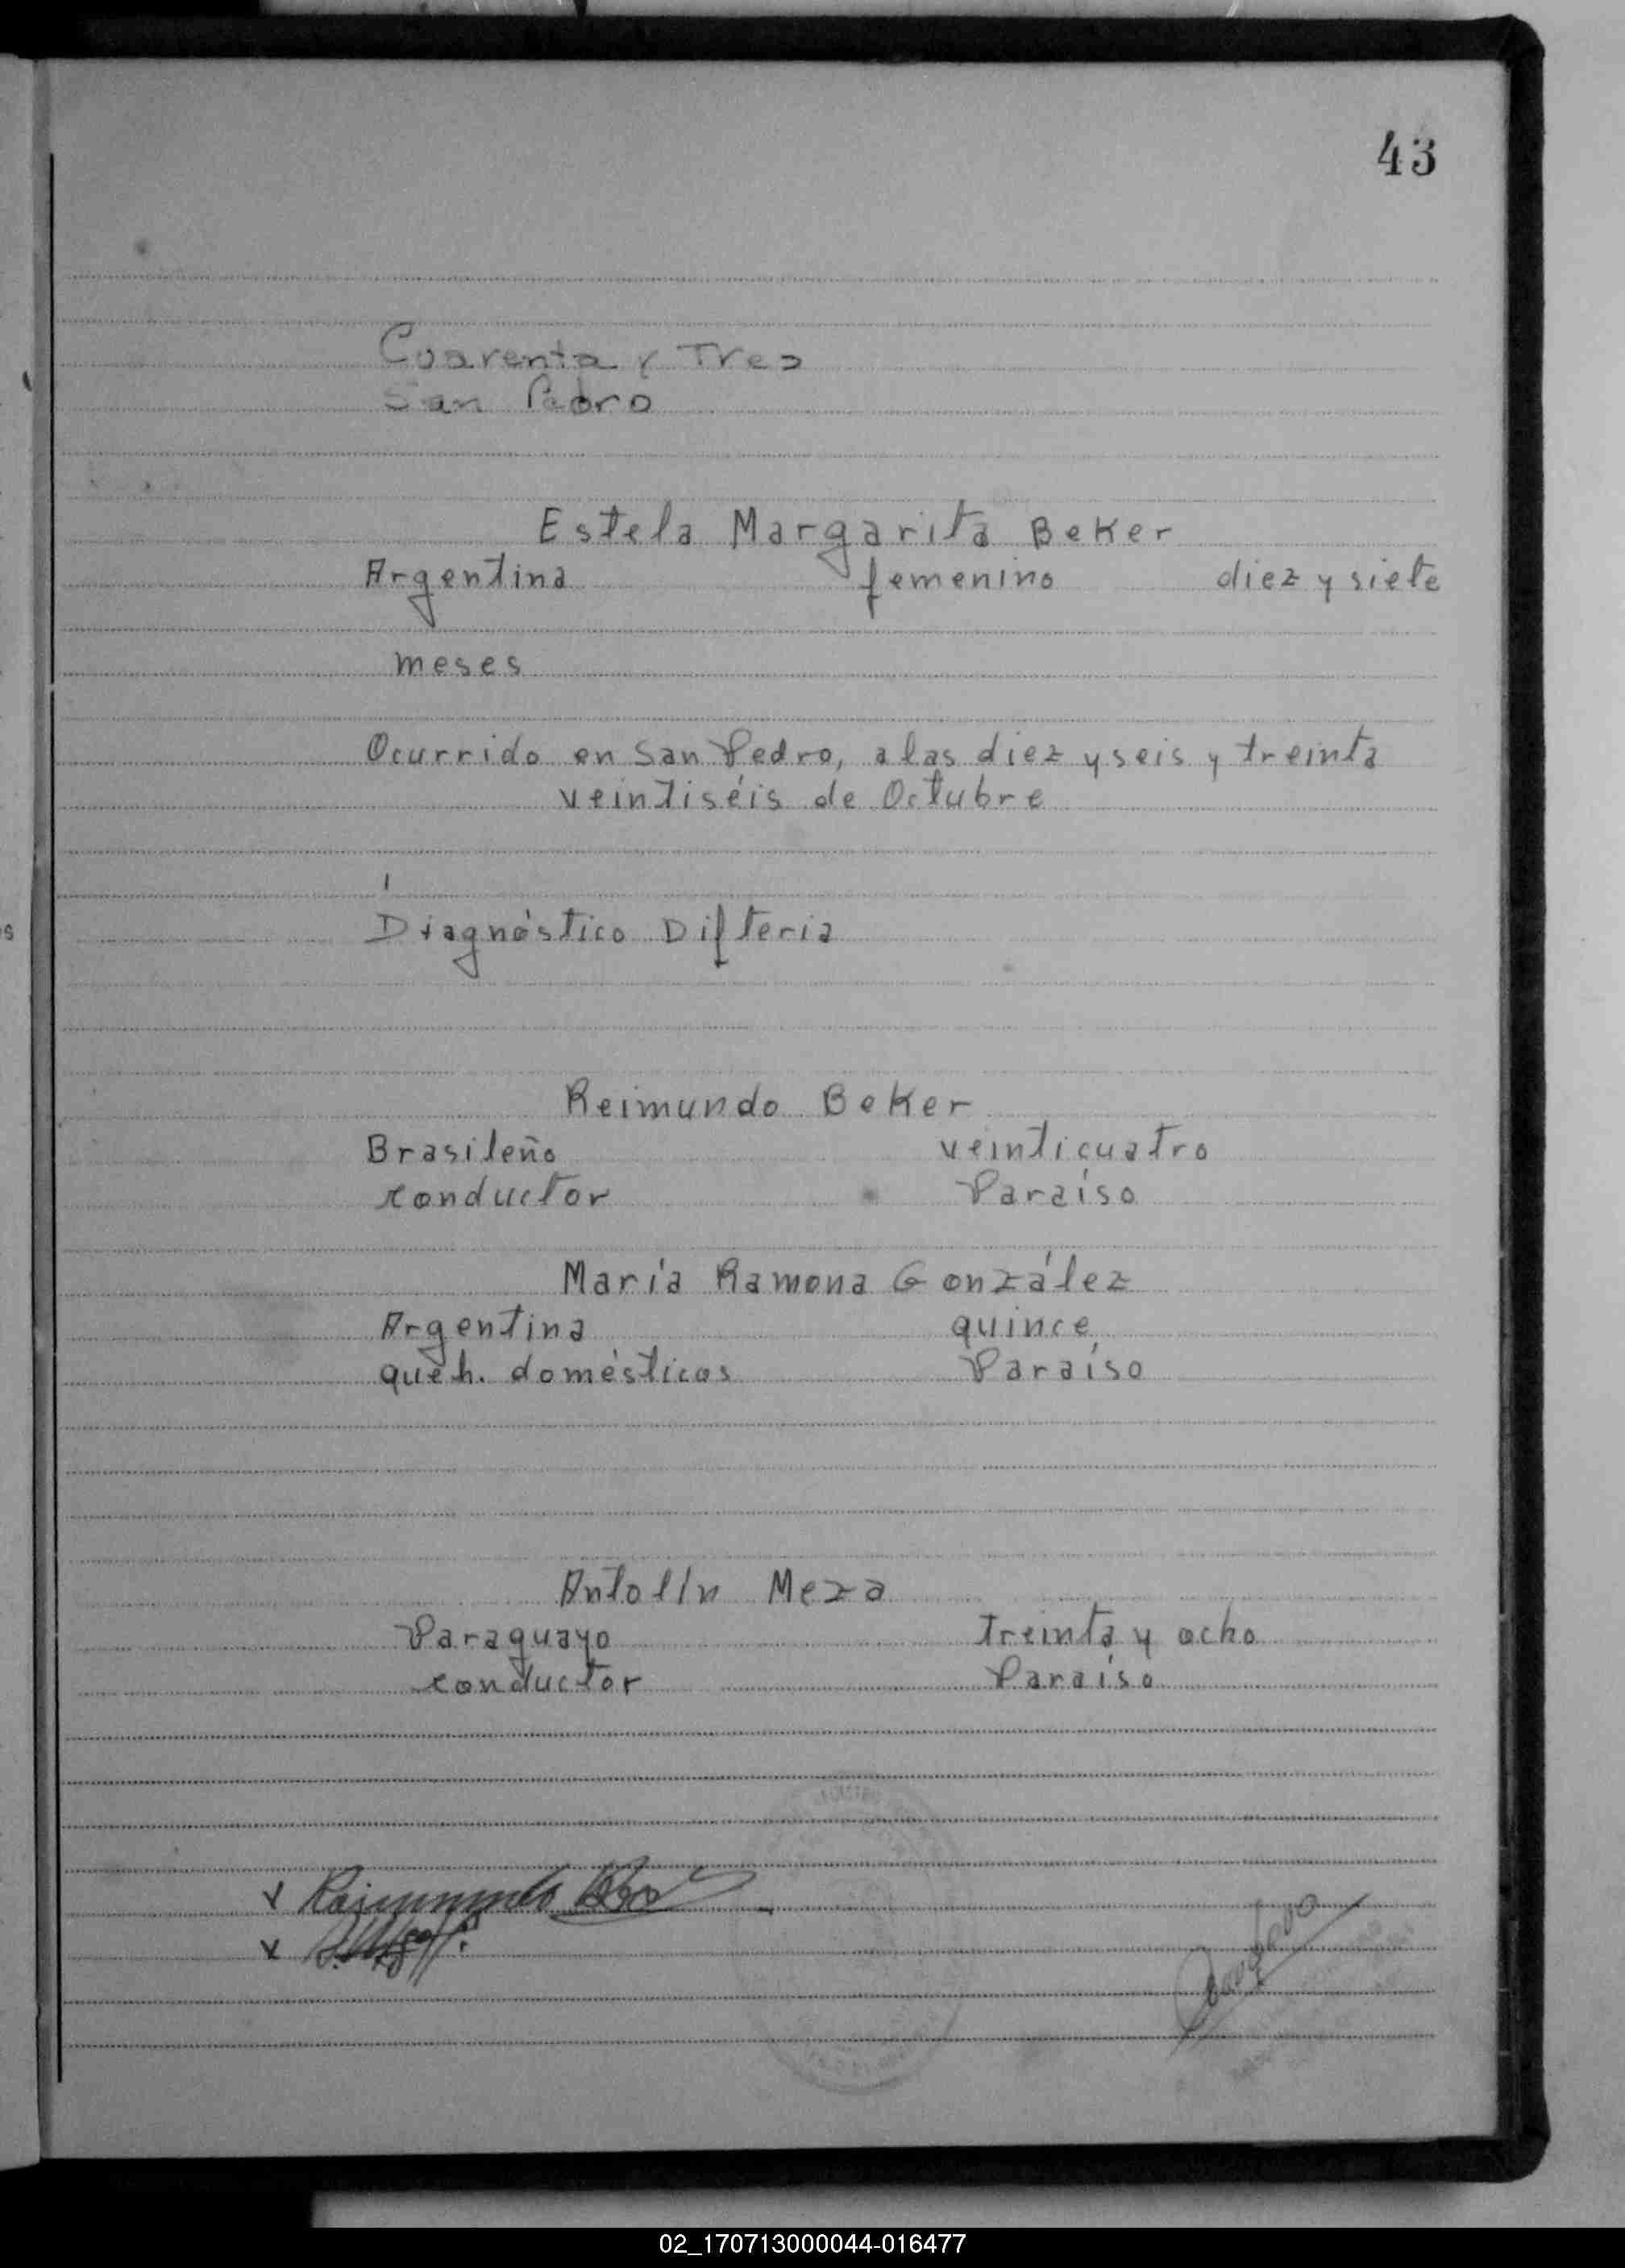 43
Cuarenta y Tres
San Pedro
Estela Margarita Beker
Argentina femenino diez y siete
meses
Ocurrido en San Pedro, a las diez y seis y treinta
veintiséis de Octubre
s
Diagnóstico Difteria
Reimundo Beker
Brasileño veinticuatro
conductor Paraíso
María Ramona González
Argentina quince
queh. domésticos Paraíso
Antolín Meza
Paraguayo treinta y ocho
conductor Paraíso
Raimundo
02_170713000044-016477